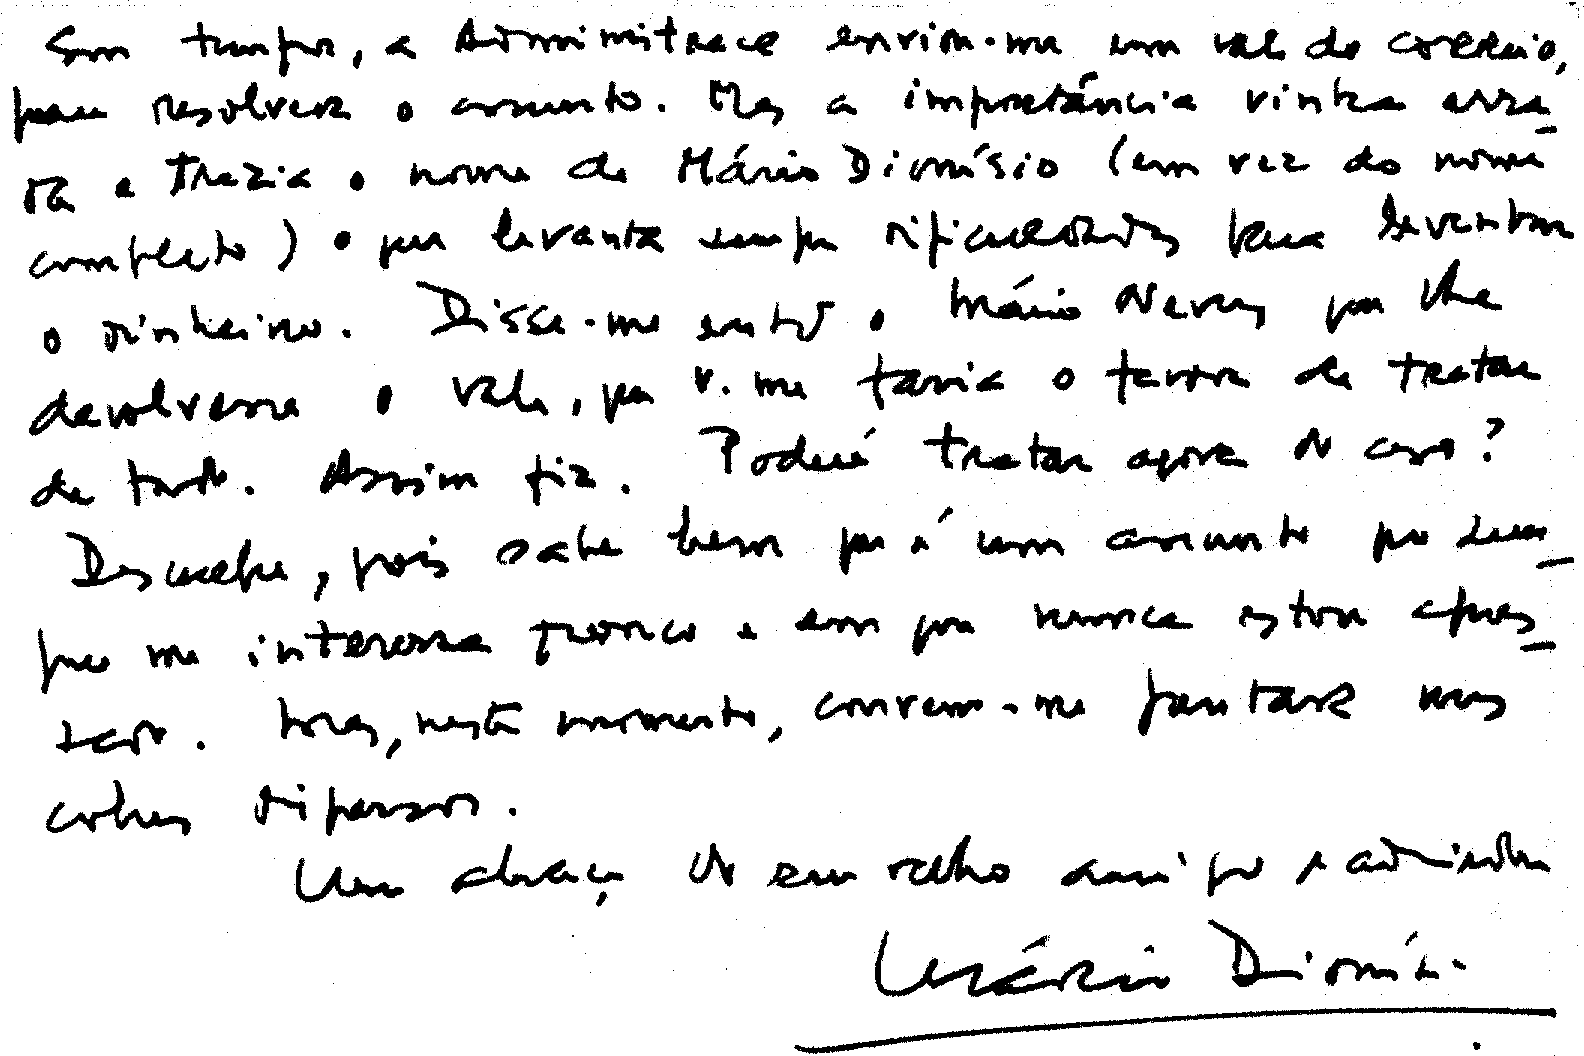 Em tempos, a Administração enviou-me um vale do correio,
para resolver o assunto. Mas a importância vinha erra-
da e trazia o nome de Mário Dionísio (em vez do nome
completo) o que levanta sempre dificuldades para levantar
o dinheiro. Disse-me então o Mário Neves que lhe
devolvesse o vale, que V. me faria o favor de tratar
de tudo. Assim fiz. Poderá tratar agora do caso?
Desculpe, pois sabe bem que é um assunto que sem-
pre me interessa pouco e em que nunca estou apres-
sado. Mas, neste momento, convem-me juntar uns
cobres dispersos.
Um abraço do seu velho amigo e admirador
Mário Dionísio